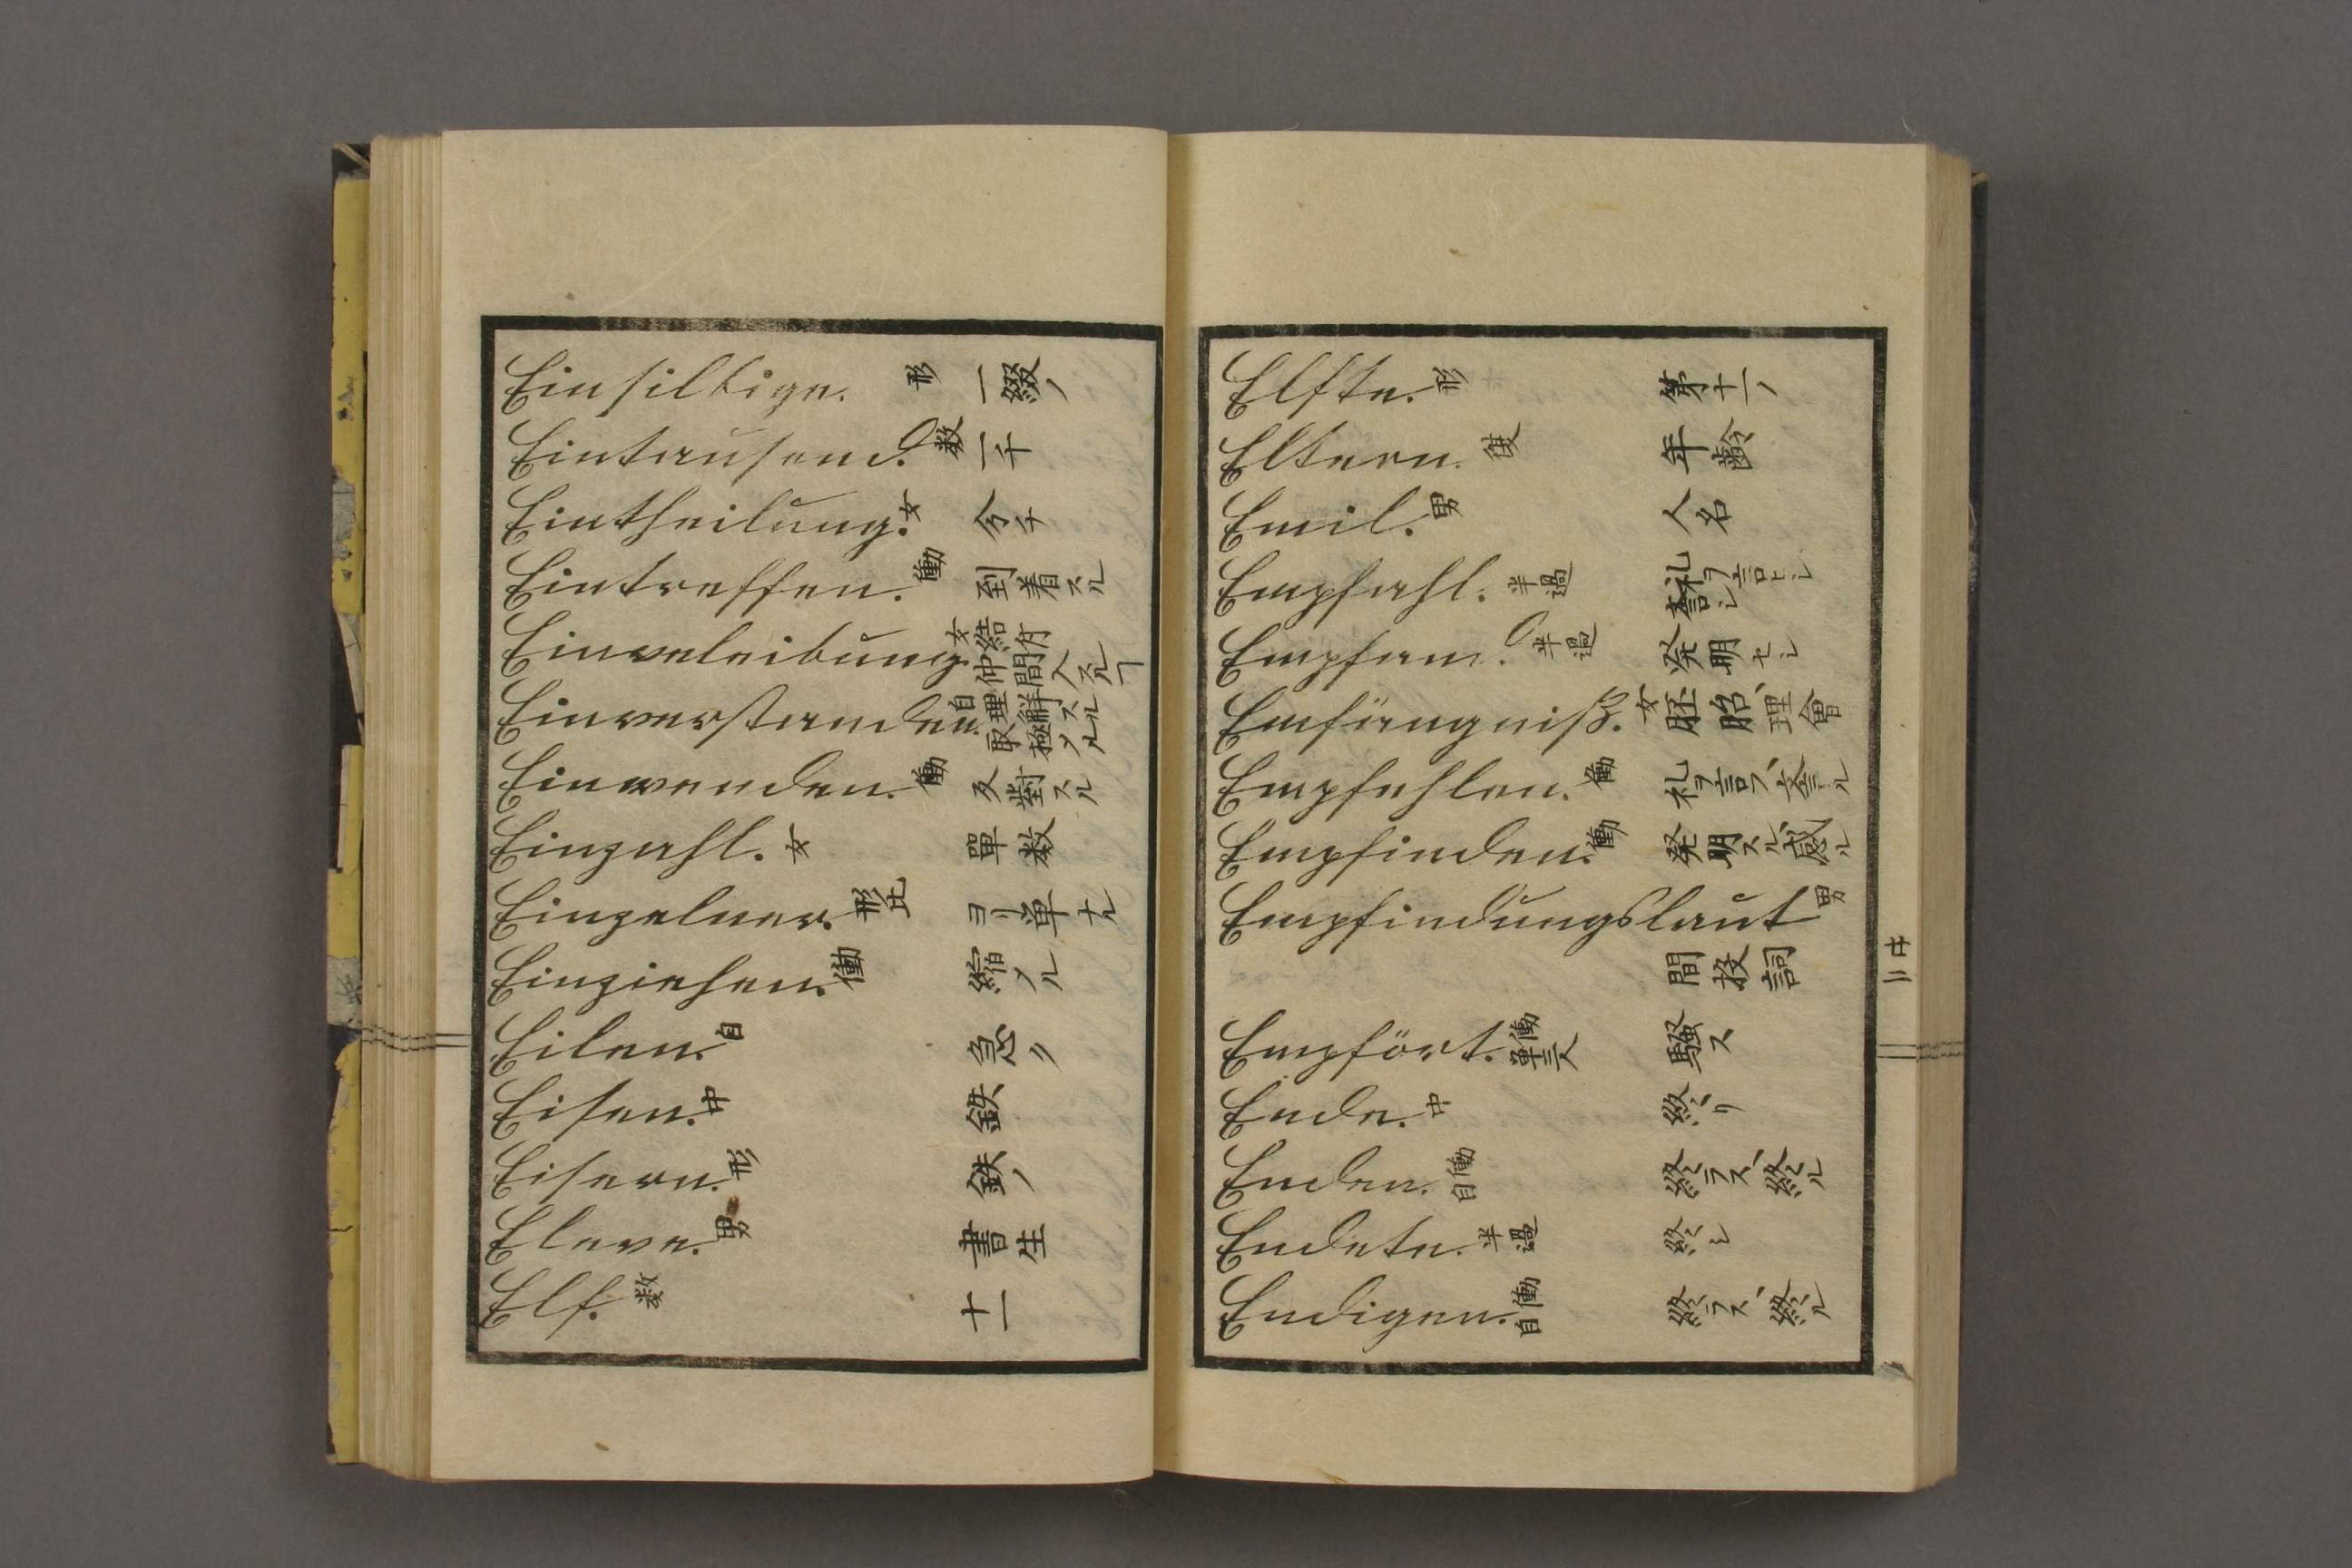 Einsilbige. 形 一綴ノ
Eintausend. 数 一千
Eintheilung. 女 分チ
Eintreffen. 働 到着スル
Einveleibung. 女 結付 仲間入スルヿ
Einverstanden. 自 理解スル 取極メル
Einwenden. 働 反對スル
Einzahl. 女 單数
Einzelner. 形比 ヨリ単ナル
Einziehen. 働 縮メル
Eilen. 自 急リ
Eisen. 中 鉄
Eisern. 形 鉄ノ
Eleve. 男 書生
Elf. 数 十一
Elfte. 形 第十一ノ
Eltern. 復 年齢
Emil. 男 人名
Empfahl. 半過 礼ヲ言ヒシ
Empfan. 半過 発明セシ
Emfängniß. 女 胚胎、理會
Empfehlen. 働 礼ヲ言フ、
Empfinden. 働 発明スル、感ル
Empfindungslaut 男
間投詞
Empfört. 働單三人 騒ス
Ende. 中 終リ
Enden. 働自 終ラス、終ル
Endete. 半過 終シ
Endigen. 働自 終ラス、終ル
廿二